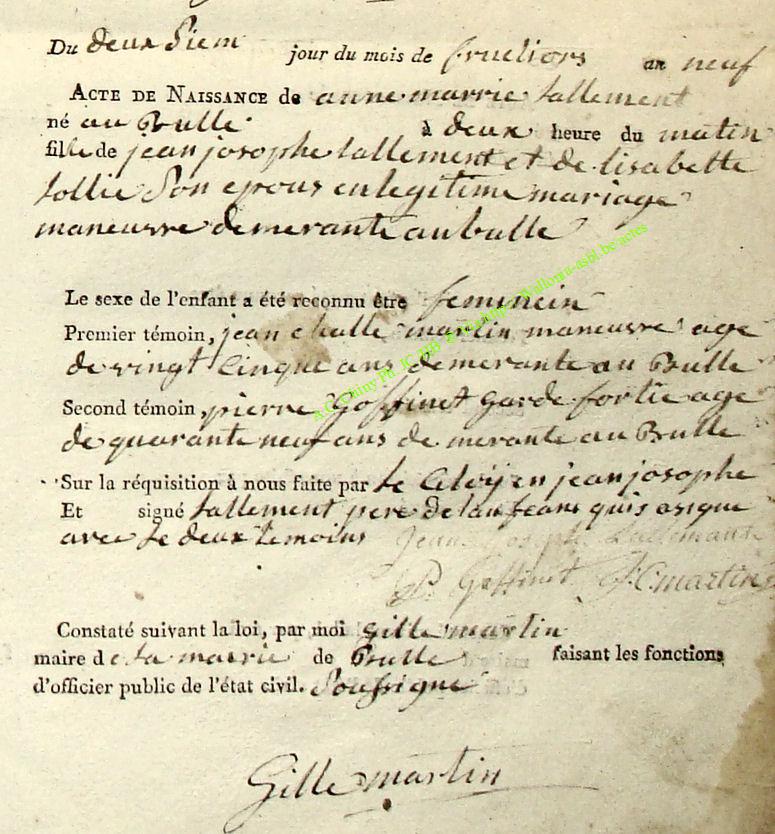 Du deux Siem jour du mois de fructiors an neuf
ACTE DE NAISSANCE de anne marrie lallement
né au Bulle à deux heure du matin
fille de jean josophe lallement et de lisabette
Son epous en legitime mariage
maneuvre demerante au bulle
Le sexe de l'enfant a été reconnu être feminein
Premier témoin, jean challe martin maneuvre age
de vingt Cinque ans demerante au Bulle
Second témoin, pierre Goffinet garde fortie age
de quarante neuf ans de merante au Bulle
Sur la réquisition à nous faite par le Citoyen jean josophe
Et signé lallement pere de lanfeans quis asigue
avec le deux temoins Jean Joseph Lallemant
P. Goffinet J. C. martin
Constaté suivant la loi, par moi Gille martin
maire de la maerie de Bulle faisant les fonctions
d'officier public de l'état civil. Soussigne
Gille martin